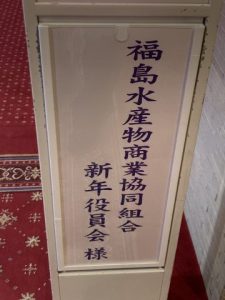 福島水産物商業協同組合
新年役員会 様